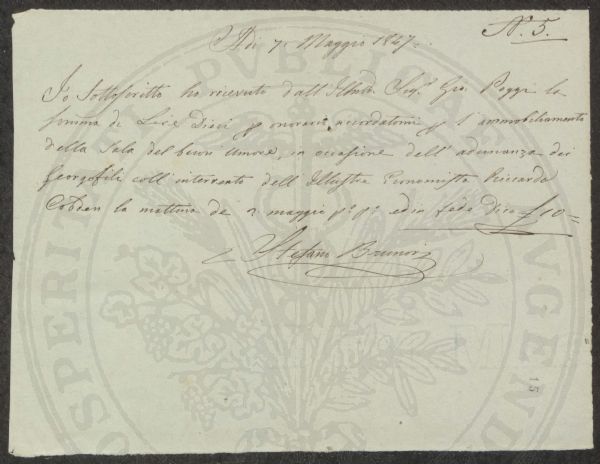 N.º 5.
Adì 7. Maggio 1847.
Io Sottoscritto ho ricevuto dall'Illmo Sigr. Gio. Poggi la
somma di Lire Dieci p onorario accordatomi p l'ammobiliamento
della Sala del buon umore, in occasione dell'adunanza dei
Georgofili coll'intervento dell'Illustre Economista Riccardo
Cobden la mattina de 2 maggio po. po. ed in fede dico £10=
Stefano Brunori
PROSPERITATI PUBLICAE AUGENDAE
M
15